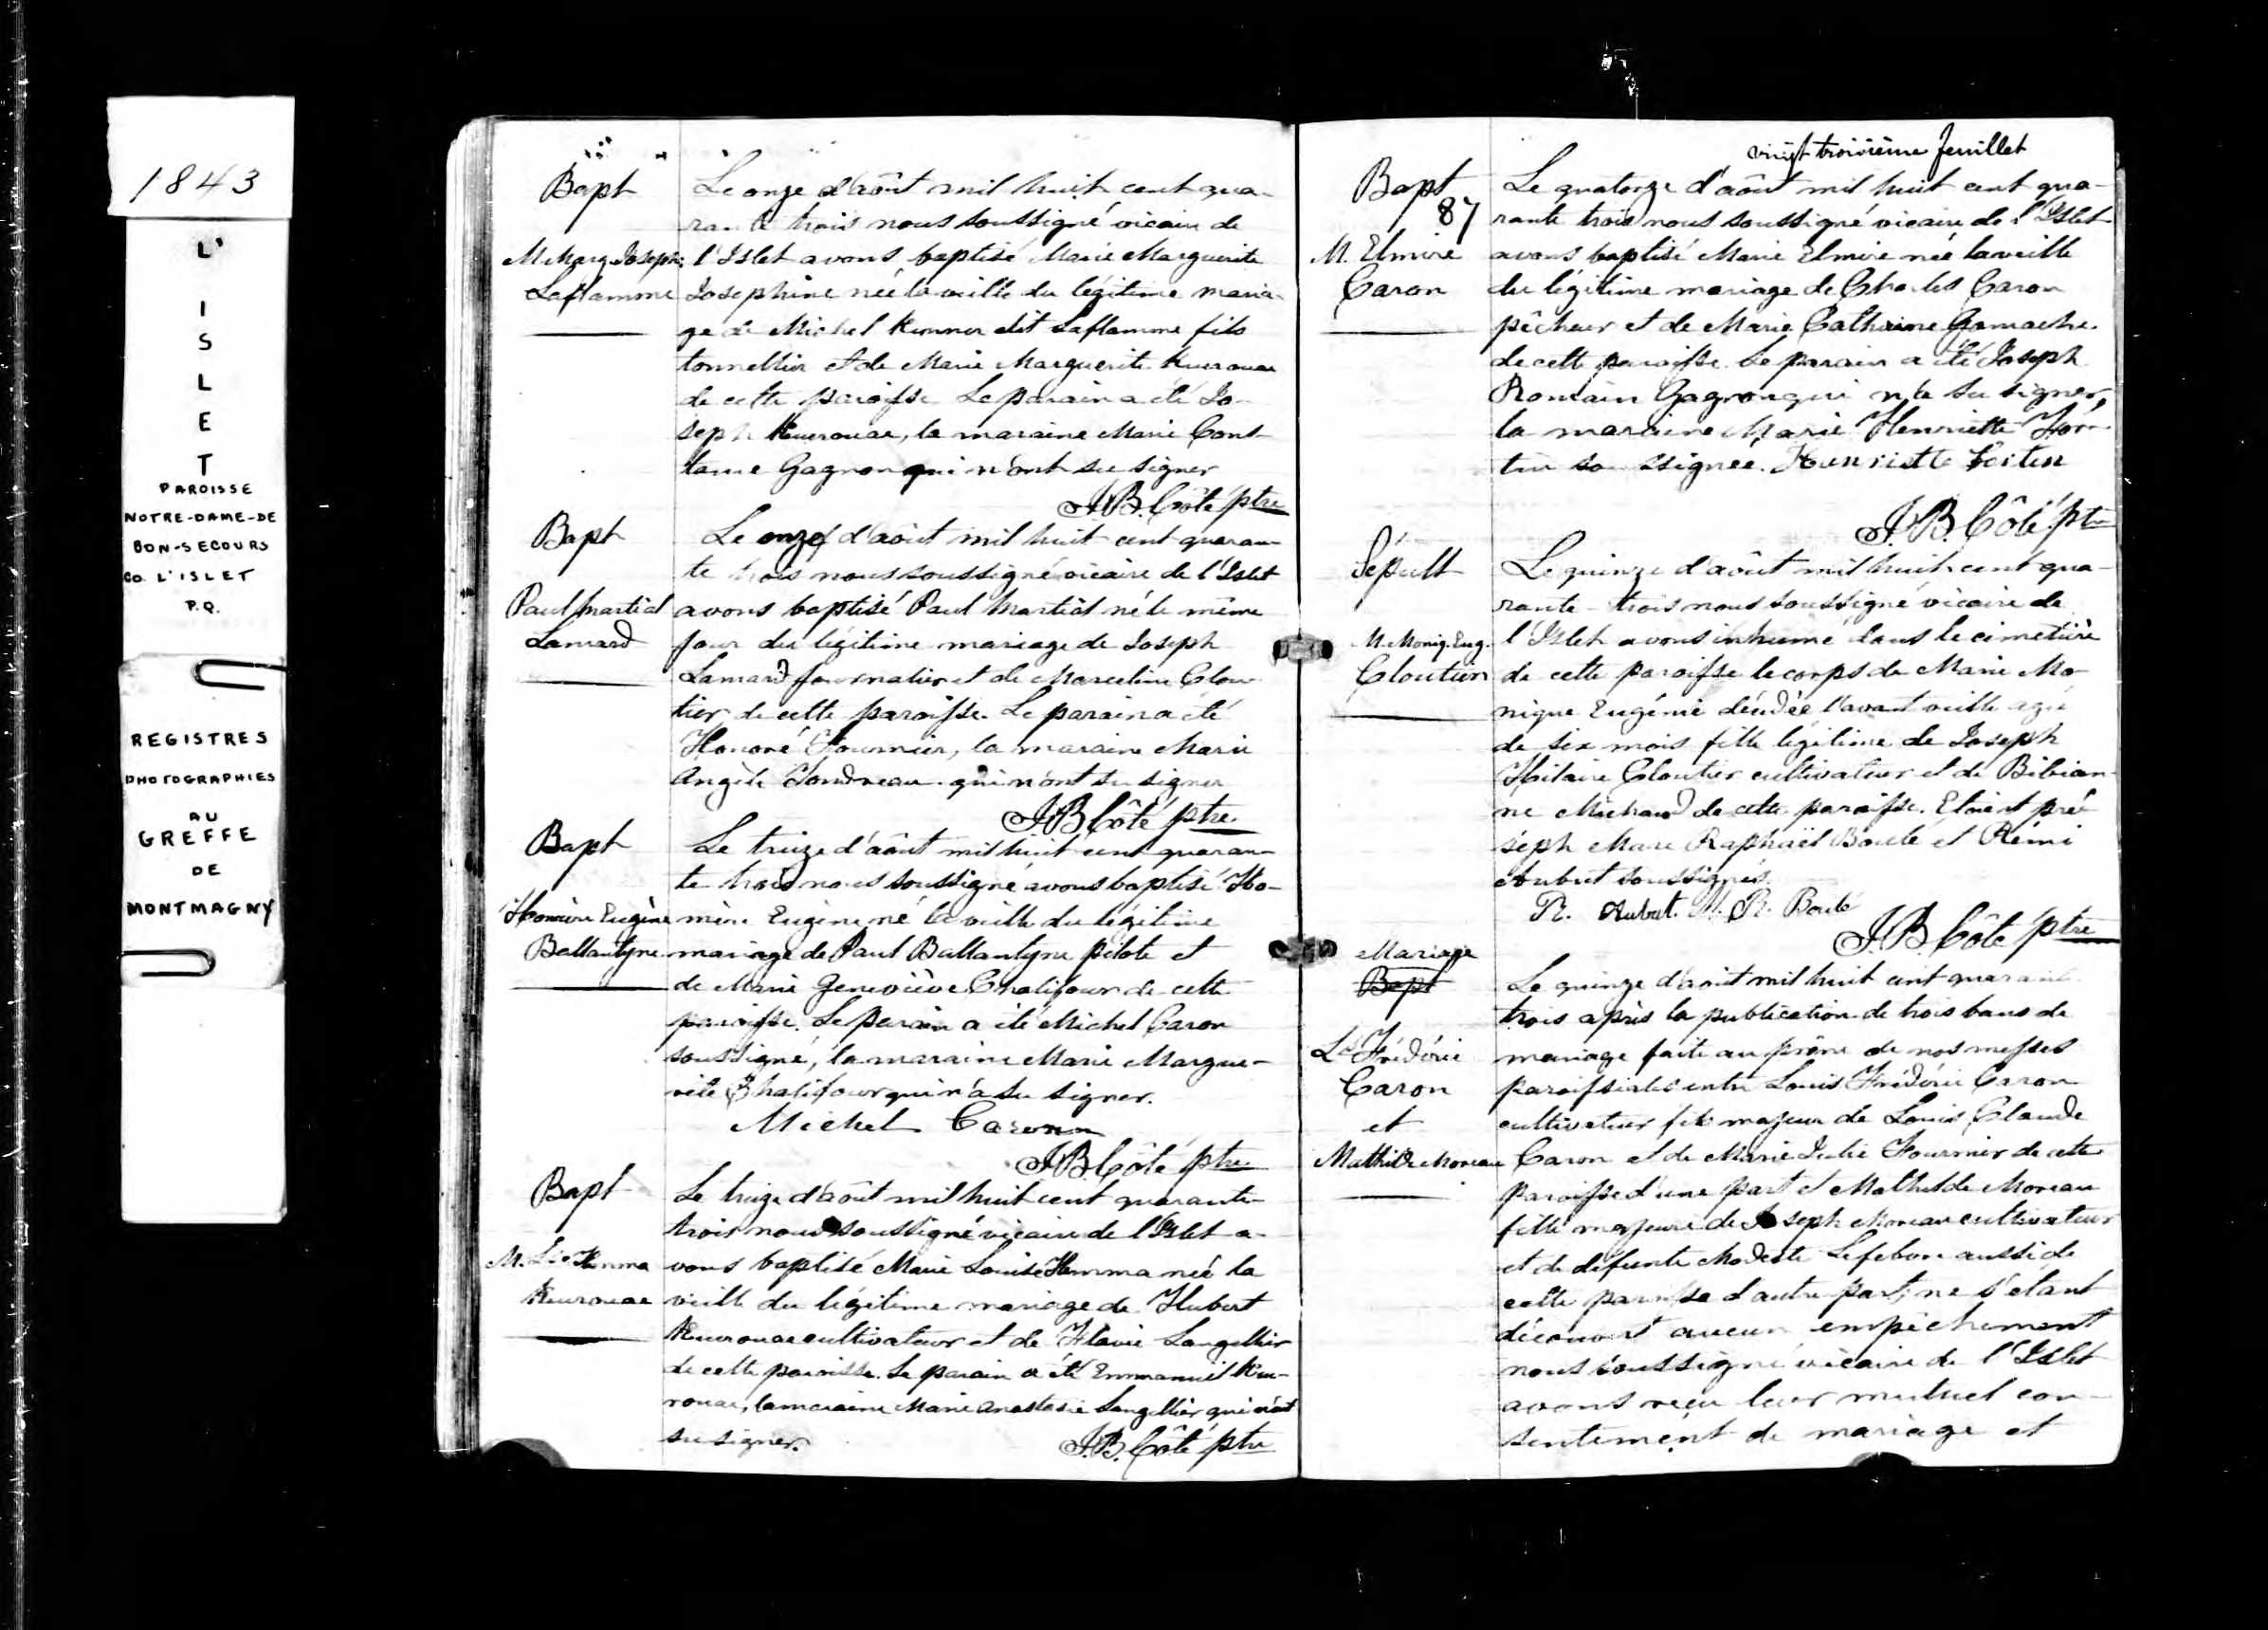 1843
L'
I
S
L
E
T
PAROISSE
NOTRE-DAME-DE
BON-SECOURS
CO. L'ISLET
P.Q.
REGISTRES
PHOTOGRAPHIES
AU
GREFFE
DE
MONTMAGNY
Bapt
M. Marg. Joseph.
Laflamme
Le onze d'août mil huit cent qua-
rante trois nous soussigné vicaire de
l'Islet avons baptisé Marie Marguerite
Josephine née la veille du légitime maria-
ge de Michel Kemner dit Laflamme fils
tonnellier et de Marie Marguerite Kuerouac
de cette paroisse Le parain a été Jo-
seph Kuerouac, la maraine Marie Cons-
tance Gagnon qui n'ont su signer
J.B. Côté ptre
Bapt
Paul Martial
Lamard
Le onze d'août mil huit cent quaran-
te trois nous soussigné vicaire de l'Islet
avons baptisé Paul Martial né le même
jour du légitime mariage de Joseph
Lamard journalier et de Marceline Clou-
tier de cette paroisse. Le parain a été
Honoré Fournier, la maraine Marie
Angèle Gondreau qui n'ont su signer
J.B. Côté ptre
Bapt
Homère Eugène
Ballantyne
Le treize d'août mil huit cent quaran-
te trois nous soussigné avons baptisé Ho-
mère Eugène né la veille du légitime
mariage de Paul Ballantyne pilote et
de Marie Geneviève Chalifour de cette
paroisse. Le parain a été Michel Caron
soussigné, la maraine Marie Margue-
rite Chalifour qui n'a su signer.
Michel Caron
J.B. Côté ptre
Bapt
M. Lse Hemma
Kuerouac
Le treize d'août mil huit cent quarante
trois nous soussigné vicaire de l'Islet a-
vons baptisé Marie Louise Hemma née la
veille du légitime mariage de Hubert
Kuerouac cultivateur et de Flavie Langellier
de cette paroisse. Le parain a été Emmanuel Kue-
rouac, la maraine Marie Anastasie Langellier qui n'ont
su signer.
J.B. Côté ptre
vingt troisième feuillet
Bapt
87
M. Elmire
Caron
Le quatorze d'août mil huit cent qua-
rante trois nous soussigné vicaire de l'Islet
avons baptisé Marie Elmire née la veille
du légitime mariage de Charles Caron
pêcheur et de Marie Catherine Gamache
de cette paroisse. Le parain a été Joseph
Romain Gagnon qui n'a su signer,
la maraine Marie Henriette For-
tin soussignée. Henriette Fortin
J.B. Côté ptre
Sépult
M. Moniq. Eug.
Cloutier
Le quinze d'août mil huit cent qua-
rante-trois nous soussigné vicaire de
l'Islet avons inhumé dans le cimetière
de cette paroisse le corps de Marie Mo-
nique Eugénie décédée l'avant veille agée
de six mois fille légitime de Joseph
Hilaire Cloutier cultivateur et de Bibian-
ne Michaud de cette paroisse. Etaient pré-
seph Marc Raphaël Boulé et Rémi
Aubut soussignés.
R. Aubut. M. R. Boulé
J.B. Côté ptre
Mariage
Bapt
Ls Frédéric
Caron
et
Mathilde Moreau
Le quinze d'août mil huit cent quarante
trois après la publication de trois bans de
mariage faite au prône de nos messes
paroissiales entre Louis Frédéric Caron
cultivateur fils majeur de Louis Claude
Caron et de Marie Julie Fournier de cette
paroisse d'une part et Mathilde Moreau
fille majeure de Joseph Moreau cultivateur
et de défunte Modeste Lefebvre aussi de
cette paroisse d'autre part; ne s'étant
découvert aucun empêchement
nous soussigné vicaire de l'Islet
avons reçu leur mutuel con-
sentement de mariage et